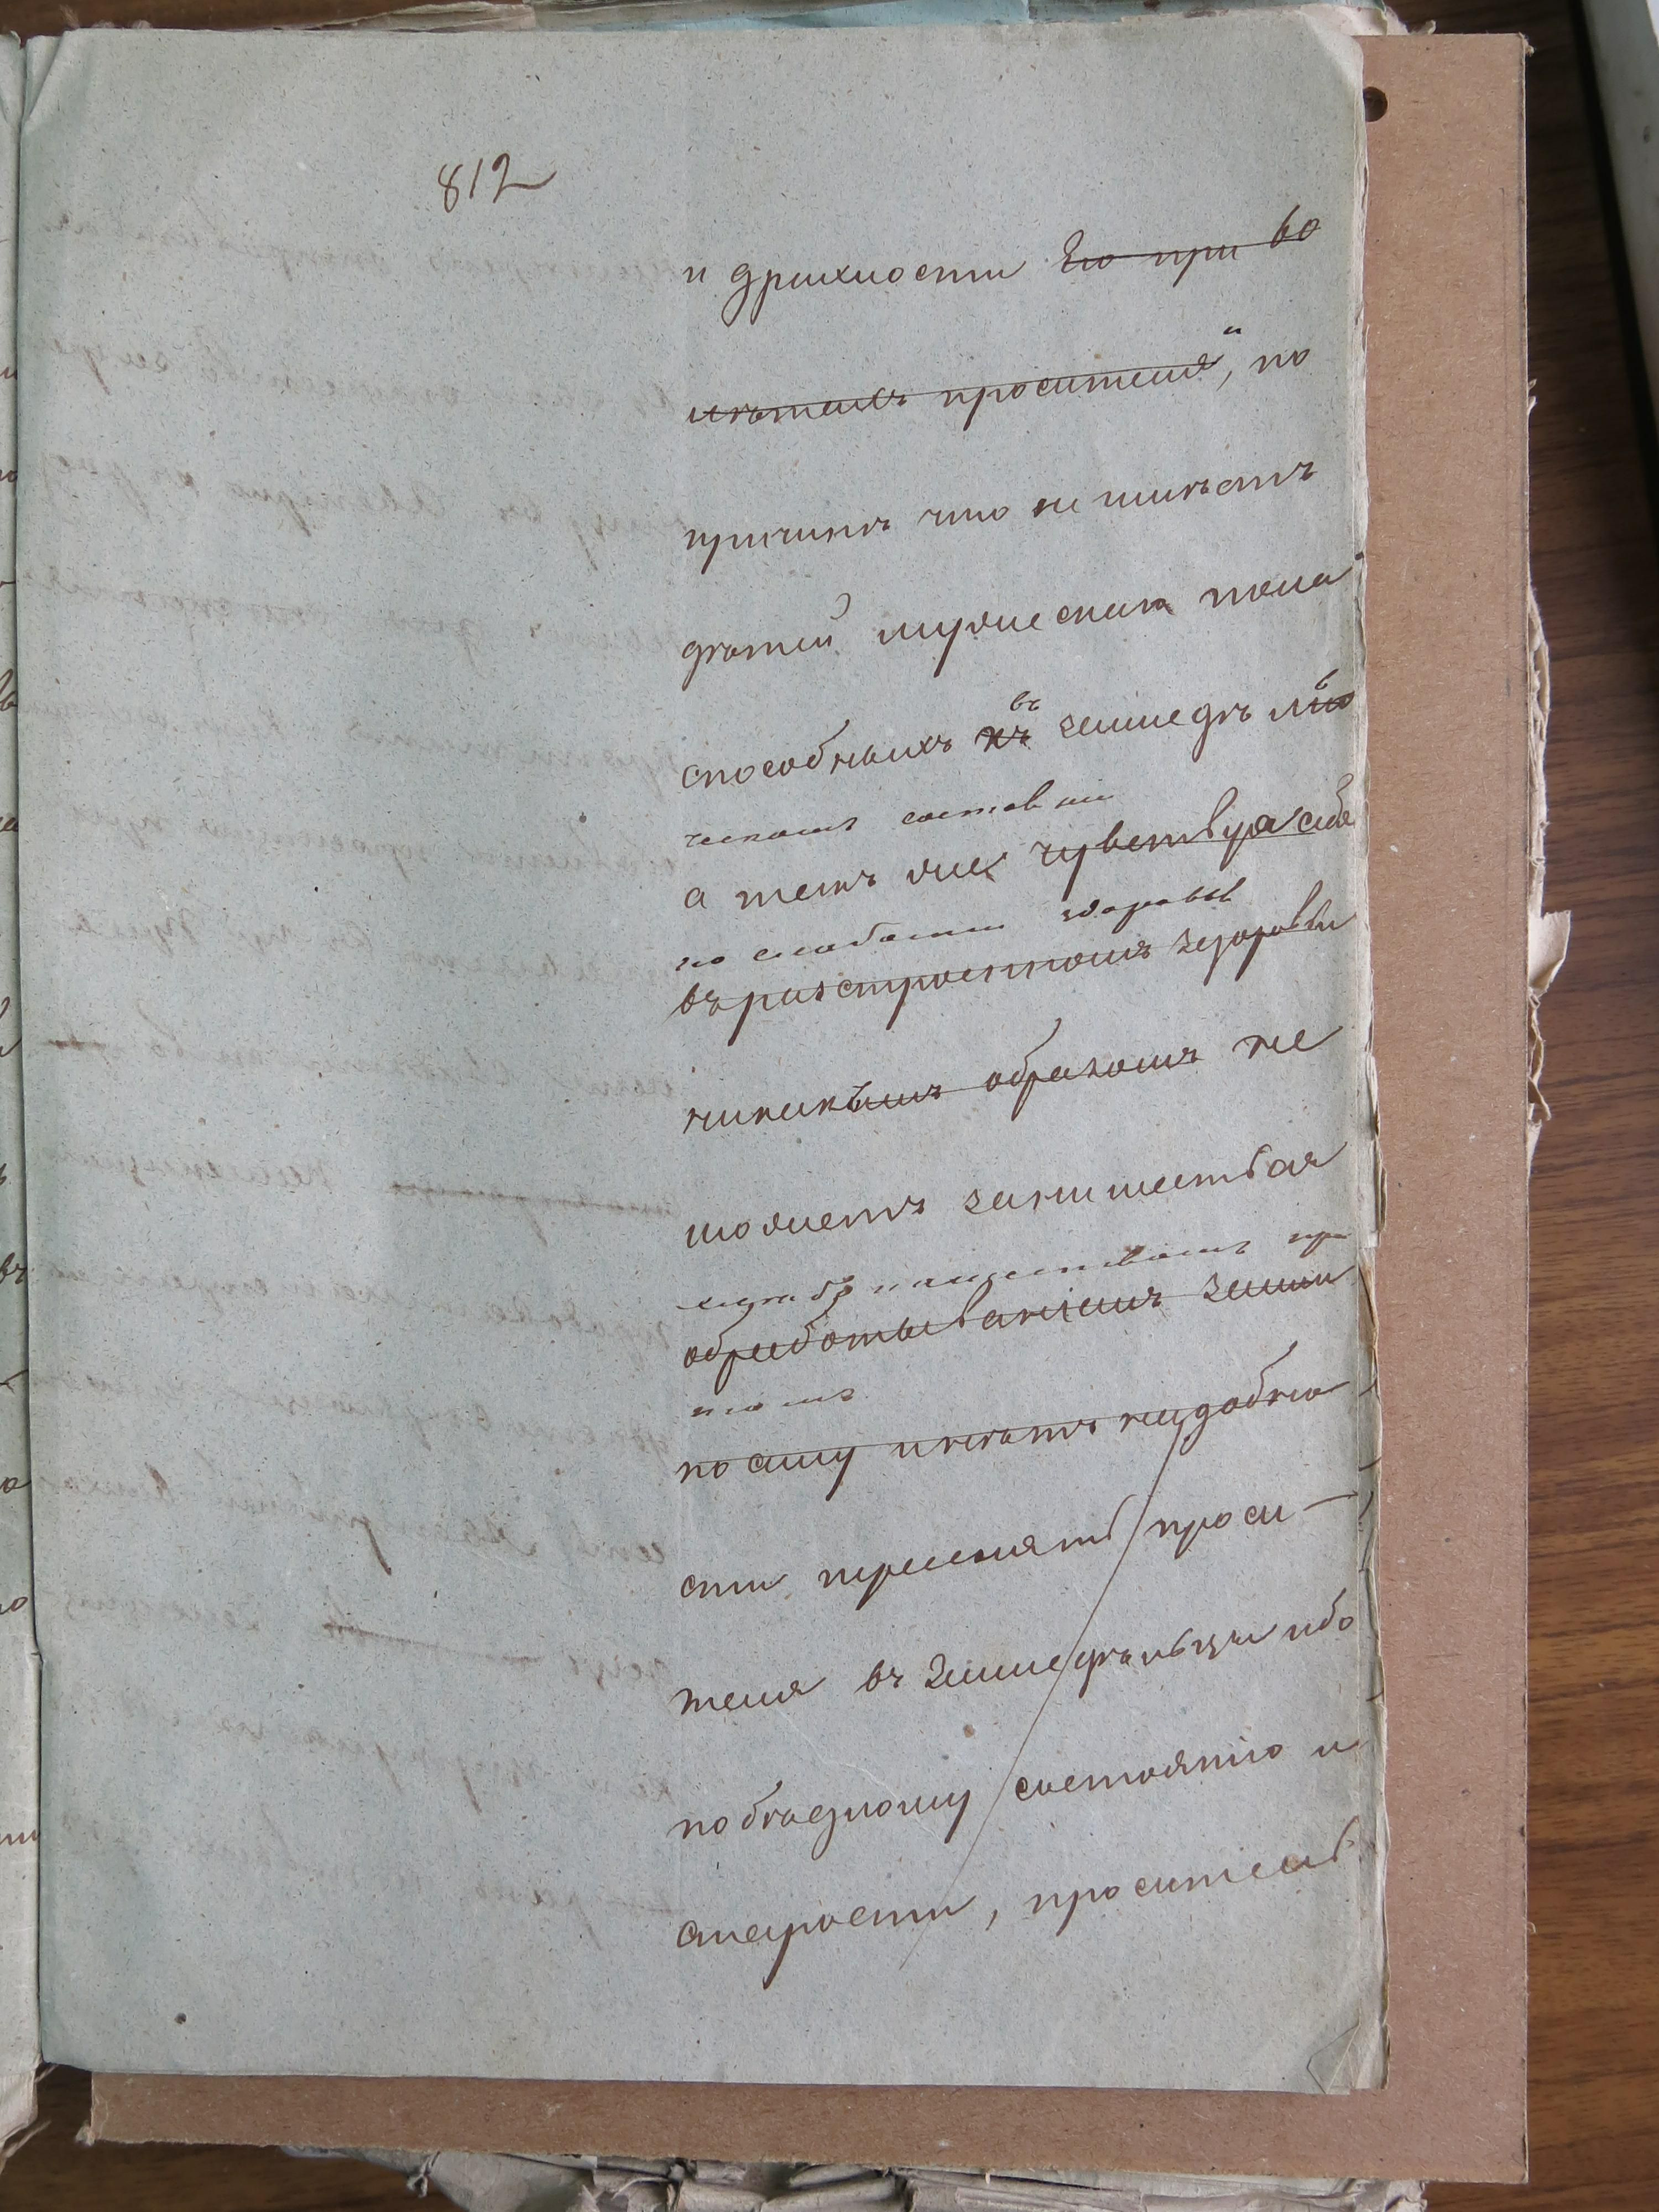 812
и дряхлости Его при во
лѣтахъ просителя, и по
причинѣ что не имѣетъ
дѣтей мужеска пола
способныхъ къ въ земледѣлію
ческомъ состоянии
а также чувствуя себя
по слабости здоровья
въ разстроенномъ здоровьи
никакимъ образомъ не
можетъ заниматься
хлѣбопашествомъ при
обработываніемъ земли
томъ
посему и нѣтъ надобно
сти перечислять проси-
теля въ земледѣльцы ибо
по бѣдному состоянію и
старости, проситель